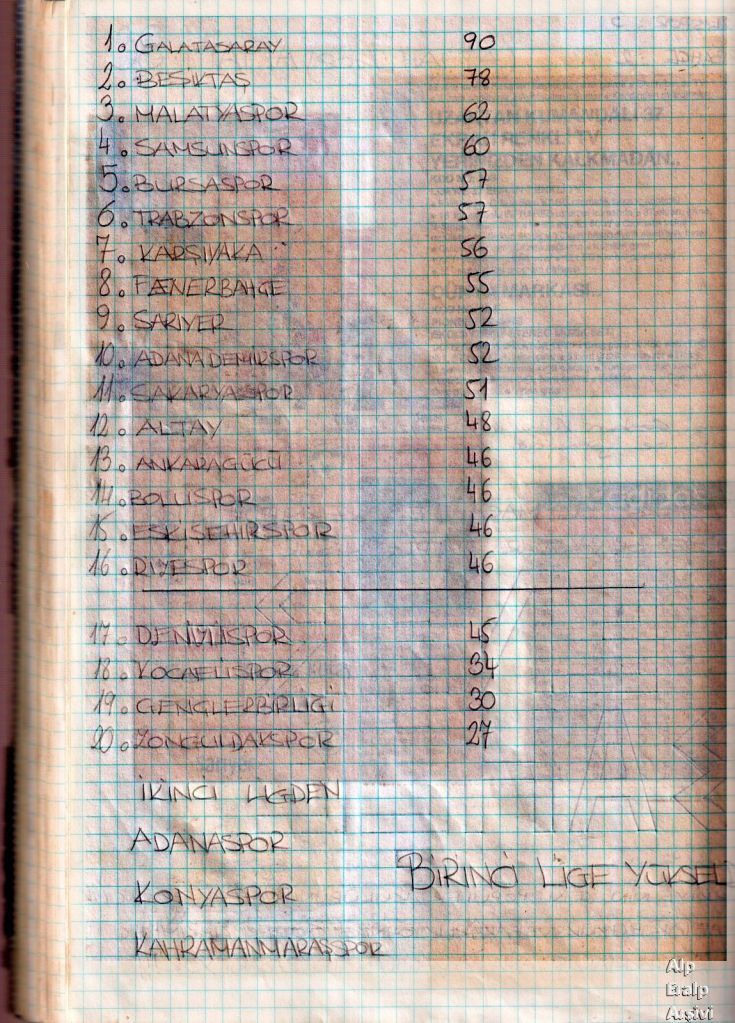 1. GALATASARAY 90
2. BEŞİKTAŞ 78
3. MALATYASPOR 62
4. SAMSUNSPOR 60
5. BURSASPOR 57
6. TRABZONSPOR 57
7. KARŞIYAKA 56
8. FENERBAHÇE 55
9. SARIYER 52
10. ADANA DEMİRSPOR 52
11. SAKARYASPOR 51
12. ALTAY 48
13. ANKARAGÜCÜ 46
14. BOLUSPOR 46
15. ESKİŞEHİRSPOR 46
16. RİZESPOR 46
17. DENİZLİSPOR 45
18. KOCAELİSPOR 34
19. GENÇLERBİRLİĞİ 30
20. ZONGULDAKSPOR 27
İKİNCİ LİGDEN
ADANASPOR
BİRİNCİ LİGE YÜKSEL
KONYASPOR
KAHRAMANMARAŞSPOR
Alp
Eralp
Arşivi